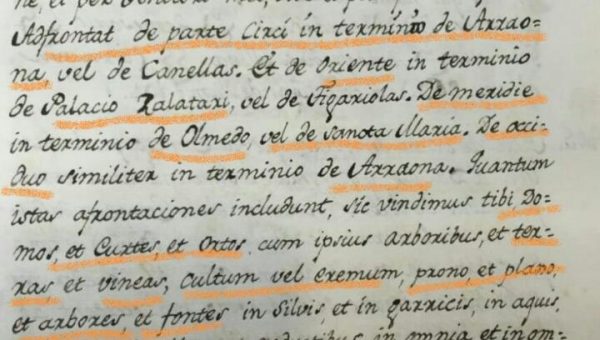 Adfrontat de parte Circi in terminio de Arrao-
na, vel de Canellas. Et de oriente in terminio
de Palacio Ralatari, vel de Figariolas. De meridie
in terminio de Olmedo, vel de sancta Maria. De occi-
duo similiter in terminio de Arraona. Quantum
istas afrontaciones includunt, sic vindimus tibi Do-
mos, et Curtes, et Ortos cum ipsius arboribus, et ter-
ras, et vineas, cultum vel eremum, prono, et plano,
et arbores, et fontes in Silvis, et in garricis, in aquis,
in omnia et in om-